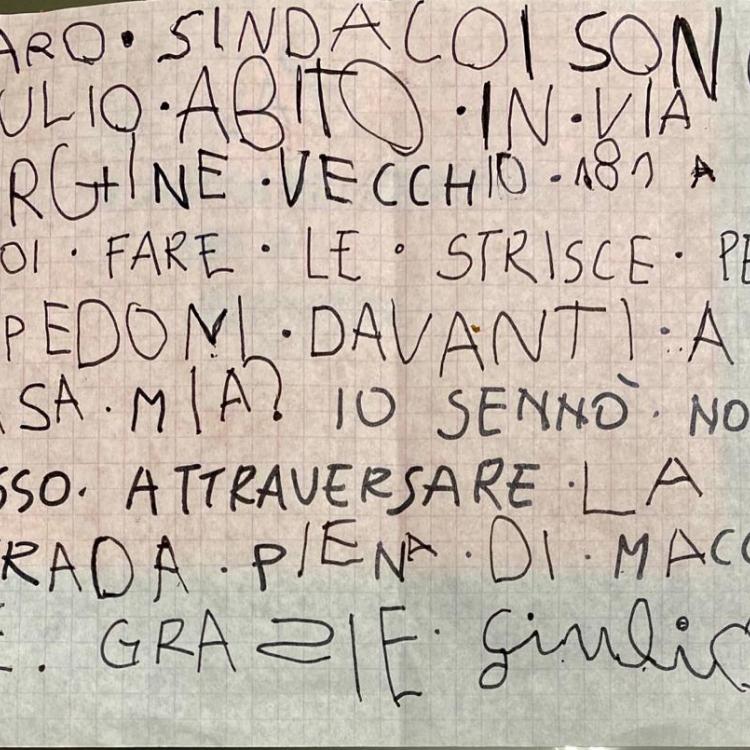 ARO · SINDACO I SON
ULIO · ABITO · IN · VIA
RGINE · VECCHIO · 181 A
OI · FARE · LE · STRISCE · PE
PEDONI · DAVANTI · A
SA · MIA? IO SENNÒ · NO
SSO · ATTRAVERSARE · LA
RADA · PIENA · DI · MACC
E. GRAZIE · Giulio